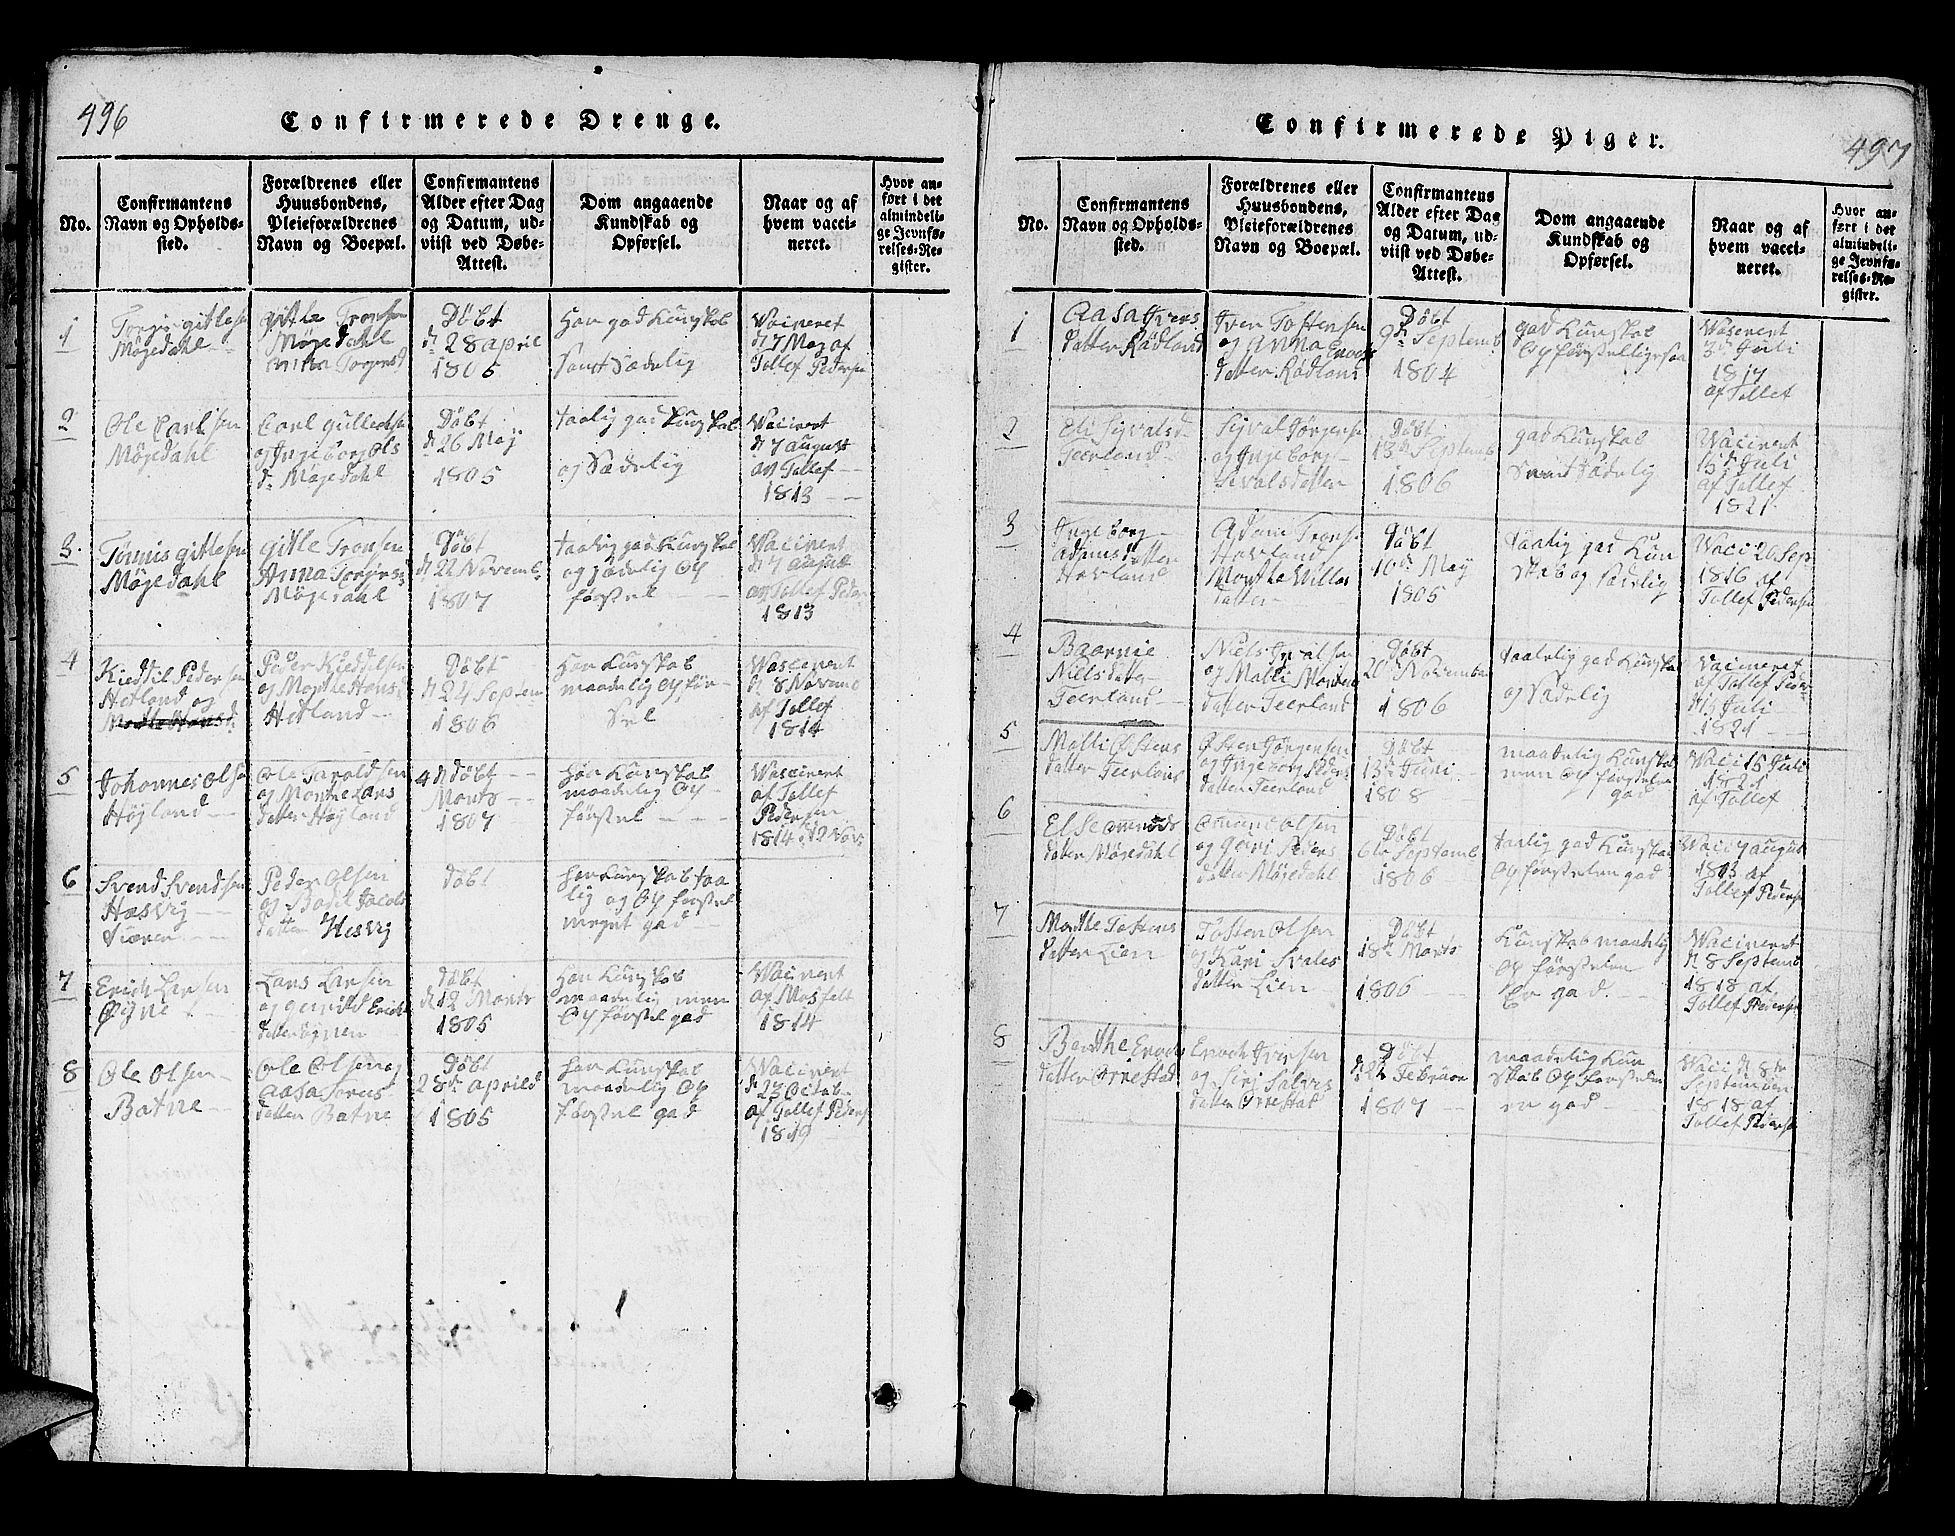 496
Confirmerede Drenge.
No.
Confirmantens
Navn og Opholds-
sted.
Forældrenes eller
Huusbondens,
Pleieforældrenes
Navn og Boepæl.
Confirmantens
Alder efter Dag
og Datum, ud-
viist ved Døbe-
Attest.
Dom angaaende
Kundskab og
Opførsel.
Naar og af
hvem vacci-
neret.
Hvor an-
ført i det
almindeli-
ge Jevnfø-
relses-Re-
gister.
1
Møgedahl
gitle Tronsen
Møgedahl
Døbt
d 28 april
1805
Har god Kunskab
Samt Sædelig
Vacineret
d 7 May af
Tollef Pedersen
2
Ole Carlsen
Møgedahl
Carl gulleds
og Ingeborg Ols
d. Møgedahl
Døbt
d 26 Maj
1805
taalig god Kunskab
og Sædelig
Vacinert
d 7 august
af Tollef
1813
3.
Tønnis gitlesen
Møgedahl
gitle Tronsen
Anna Torgers
Møgedahl
Døbt
d 22 Novemb
1807
taalig god Kunskab
og sædelig Op
førsel
Vacinert
d 7 august
af Tollef Peder
1813
4
Kieddil Pedersen
Hetland og
Peder Kieddelsen
og Monthe Hansd
Hetland
Døbt
d 24 Septem
1806
Har Kunskab
maadelig Opfør-
sel
Vascinert
d 8 Novemb
af Tollef
1814
5
Johannes Olsen
Højland
Ole Taroldsen
og Monthe Lars
datter Højland
4 d Døbt
Monts
1807
har Kunskab
maadelig Op-
førsel
Vascinert
af Tollef
Pedersen
1814 d 12 Nov:
6
Svend Svendsen
Hæsvig
Peder Olsen
og Bodil Jacobs
datter Hesvig
døbt
har Kunskab taa
lig og Opførsel
meget god
7
Erich Larsen
Øgne
Lars Larsen
og gunild Erichs
datter Øgnen
døbt
d 12 Monts
1805
har Kunskab
maadelig men
Opførsel god
Vacinert
af Mosfelt
1814
8
Ole Olsen
Batne
Ole Olsen og
Aasa Ivers
datter Batne
Døbt
28de april
1805
har Kunskab
maadelig Op
førsel god
Vacinert
d 23 Octob
af Tollef Peders
1819
497
Confirmerede Piger.
No.
Confirmantens
Navn og Opholds-
sted.
Forældrenes eller
Huusbondens,
Pleieforældrenes
Navn og Boepæl.
Confirmantens
Alder efter Dag
og Datum, ud-
viist ved Døbe-
Attest.
Dom angaaende
Kundskab og
Opførsel.
Naar og af
hvem vacci-
neret.
Hvor an-
ført i det
almindeli-
ge Jevnfø-
relses-Re-
gister.
1
Aasa Ivers
datter Rødland
Iven Tostensen
og Anna Enocks
datter Rødland
Døbt
9d Septemb
1804
god Kunskab
Opførsel ligesaa
Vascinert
3d Juli
1817
af Tollef
2
Eli Sigvalsd
Teerland
Sigval Jørgense
og Ingeborg
Sivalsdatter
Døbt
13de Septemb
1806
god Kunskab
Samt sædelig
Vacinert
15d Juli
af Tollef
1821
3
Ingeborg
Adamsdatter
Hovland
Adam Trons
Hovland
Monthe Villas
datter
Døbt
10d May
1805
taalig god Kun
skab og sædelig
Vaci 20 Sep
1816 af
Tollef Pedersen
4
Baarnie
Nielsdatter
Teerland
Niels
og Malli Montens
datter Teerland
Døbt
20d November
1806
taalelig god Kunskab
og Sædelig
Vacineret
af Tollef Peder
d 15 Juli
1821
5
Malli Østens
datter Teerland
Østen Jørgensen
og Ingeborg Peders
datter Teerland
Døbt
13de Juni
1808
maadelig Kunskab
men Opførselen
god
Vaci 15 Juli
1821
af Tollef
6
Else Omunds
datter Møgedahl
Omund Olsen
og guri Peders
datter Møgedahl
Døbt
6te Septemb
1806
taalig god Kunskab
Opførselen god
Vaci 7 august
1813 af
Tollef Peders
7
Monthe Tostens
datter Lien
Tosten Olsen
og Kari Ivales
datter Lien
Døbt
18de Monts
1806
Kunskab maadelig
Opførselen
Er god
Vacinert
d 8 Septemb
1818 af
Tollef Pedersen
8
Berthe Enocks
datter Ørrestad
Enoch Iversen
og Sirj Salves
datter Ørrestad
Døbt
d 22 Februar
1807
maadelig Kun
skab Opførselen
er god
Vaci d 8de
September
1818 af
Tollef Peders